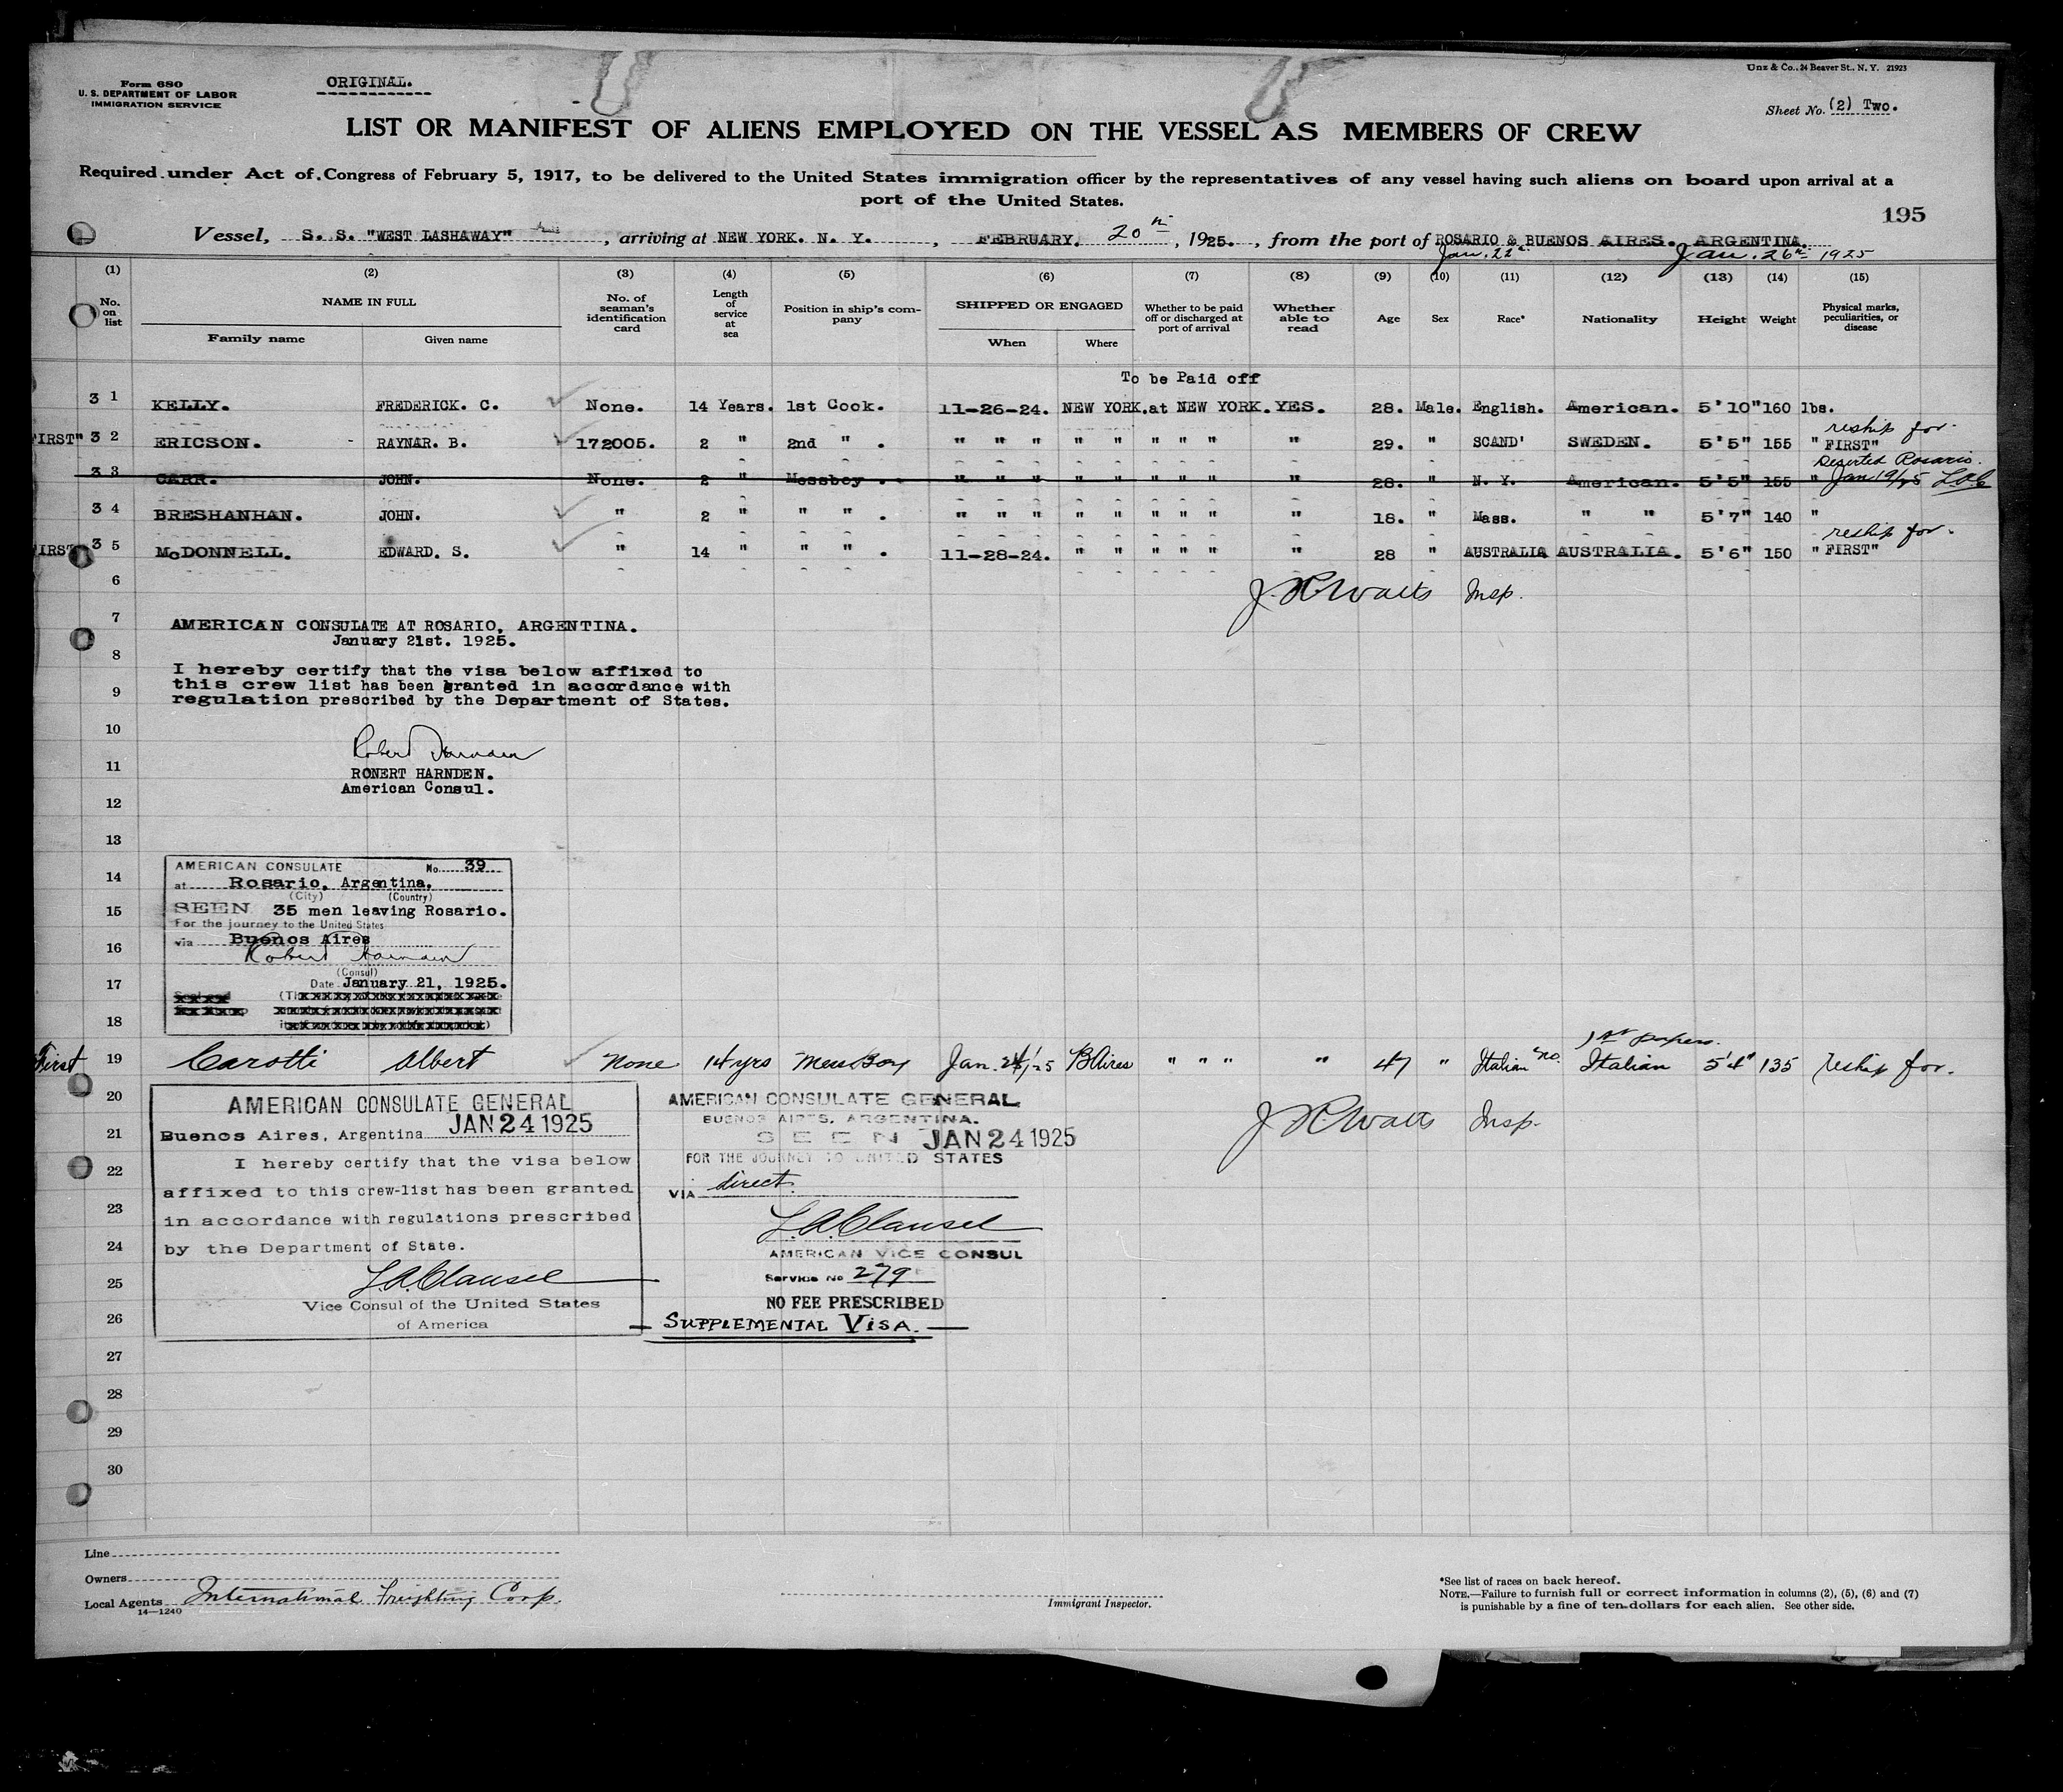 Form 680
U. S. DEPARTMENT OF LABOR
IMMIGRATION SERVICE
ORIGINAL.
Unz & Co., 24 Beaver St., N. Y. 21923
Sheet No. (2) Two.
LIST OR MANIFEST OF ALIENS EMPLOYED ON THE VESSEL AS MEMBERS OF CREW
Required under Act of Congress of February 5, 1917, to be delivered to the United States immigration officer by the representatives of any vessel having such aliens on board upon arrival at a
port of the United States.
195
Vessel, S. S. "WEST LASHAWAY", arriving at NEW YORK. N. Y., FEBRUARY. 20th, 1925., from the port of ROSARIO & BUENOS AIRES. ARGENTINA.
Jan. 22 Jan. 26th 1925
(1) (2) (3) (4) (5) (6) (7) (8) (9) (10) (11) (12) (13) (14) (15)
No. on list NAME IN FULL Family name Given name No. of seaman's identification card Length of service at sea Position in ship's company SHIPPED OR ENGAGED When Where Whether to be paid off or discharged at port of arrival Whether able to read Age Sex Race* Nationality Height Weight Physical marks, peculiarities, or disease
To be Paid off
3 1 KELLY. FREDERICK. C. None. 14 Years. 1st Cook. 11-26-24. NEW YORK. at NEW YORK. YES. 28. Male. English. American. 5'10" 160 lbs.
reship for
FIRST" 3 2 ERICSON. RAYNAR. B. 172005. 2 " 2nd " . " " " " " " " " " 29. " SCAND' SWEDEN. 5'5" 155 " FIRST"
Deserted Rosario.
3 3 CARR. JOHN. None. 2 " Messboy . " " " " " " " " " 28. " N. Y. American. 5'5" 155 " Jan 19/25 LAC
3 4 BRESHANHAN. JOHN. " 2 " " " . " " " " " " " " " 18. " Mass. " " 5'7" 140 "
reship for.
FIRST 3 5 McDONNELL. EDWARD. S. " 14 " " " . 11-28-24. " " " " " " 28 " AUSTRALIA AUSTRALIA. 5'6" 150 " FIRST"
6
J. R. Watts Insp.
7
AMERICAN CONSULATE AT ROSARIO, ARGENTINA.
January 21st. 1925.
8
I hereby certify that the visa below affixed to
this crew list has been granted in accordance with
9
regulation prescribed by the Department of States.
10
Robert Harnden
11
RONERT HARNDEN.
American Consul.
12
13
AMERICAN CONSULATE No. 39
14
at Rosario, Argentina.
(City) (Country)
15
SEEN 35 men leaving Rosario.
For the journey to the United States
16
via Buenos Aires
Robert Harnden
(Consul)
17
Date January 21, 1925.
18
1st papers.
First 19 Carotti Albert None 14 yrs Mess Boy Jan. 24/25 B Aires " " " " 47 " Italian no. Italian 5'4" 135 reship for.
20
AMERICAN CONSULATE GENERAL
JAN 24 1925
21
Buenos Aires, Argentina
22
I hereby certify that the visa below
affixed to this crew-list has been granted
23
in accordance with regulations prescribed
24
by the Department of State.
25
L.A. Clausel
Vice Consul of the United States
26
of America
AMERICAN CONSULATE GENERAL
BUENOS AIRES, ARGENTINA.
SEEN JAN 24 1925
FOR THE JOURNEY TO UNITED STATES
VIA direct.
L.A. Clausel
AMERICAN VICE CONSUL
Service No 279
NO FEE PRESCRIBED
SUPPLEMENTAL VISA.
J. R. Watts Insp.
27
28
29
30
Line
Owners
Local Agents International Freighting Corp.
14—1240
Immigrant Inspector.
*See list of races on back hereof.
NOTE.—Failure to furnish full or correct information in columns (2), (5), (6) and (7)
is punishable by a fine of ten dollars for each alien. See other side.